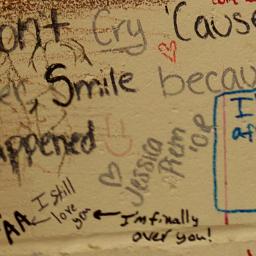 ont Cry 'Cause
er, Smile becau
appened
Jessica
Rem
'08
I
af
I still
love you
AA
I'm finally
over you!